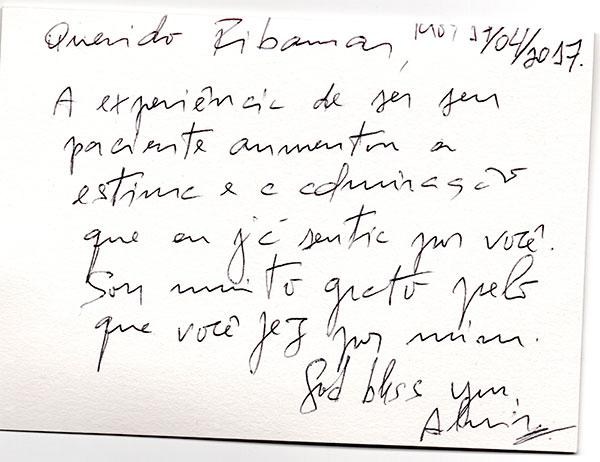 Querido Ribamar, 17/04/2017.
A experiência de ser seu
paciente aumentou a
estima e a admiração
que eu já sentia por você.
Sou muito grato pelo
que você fez por mim.
God bless you,